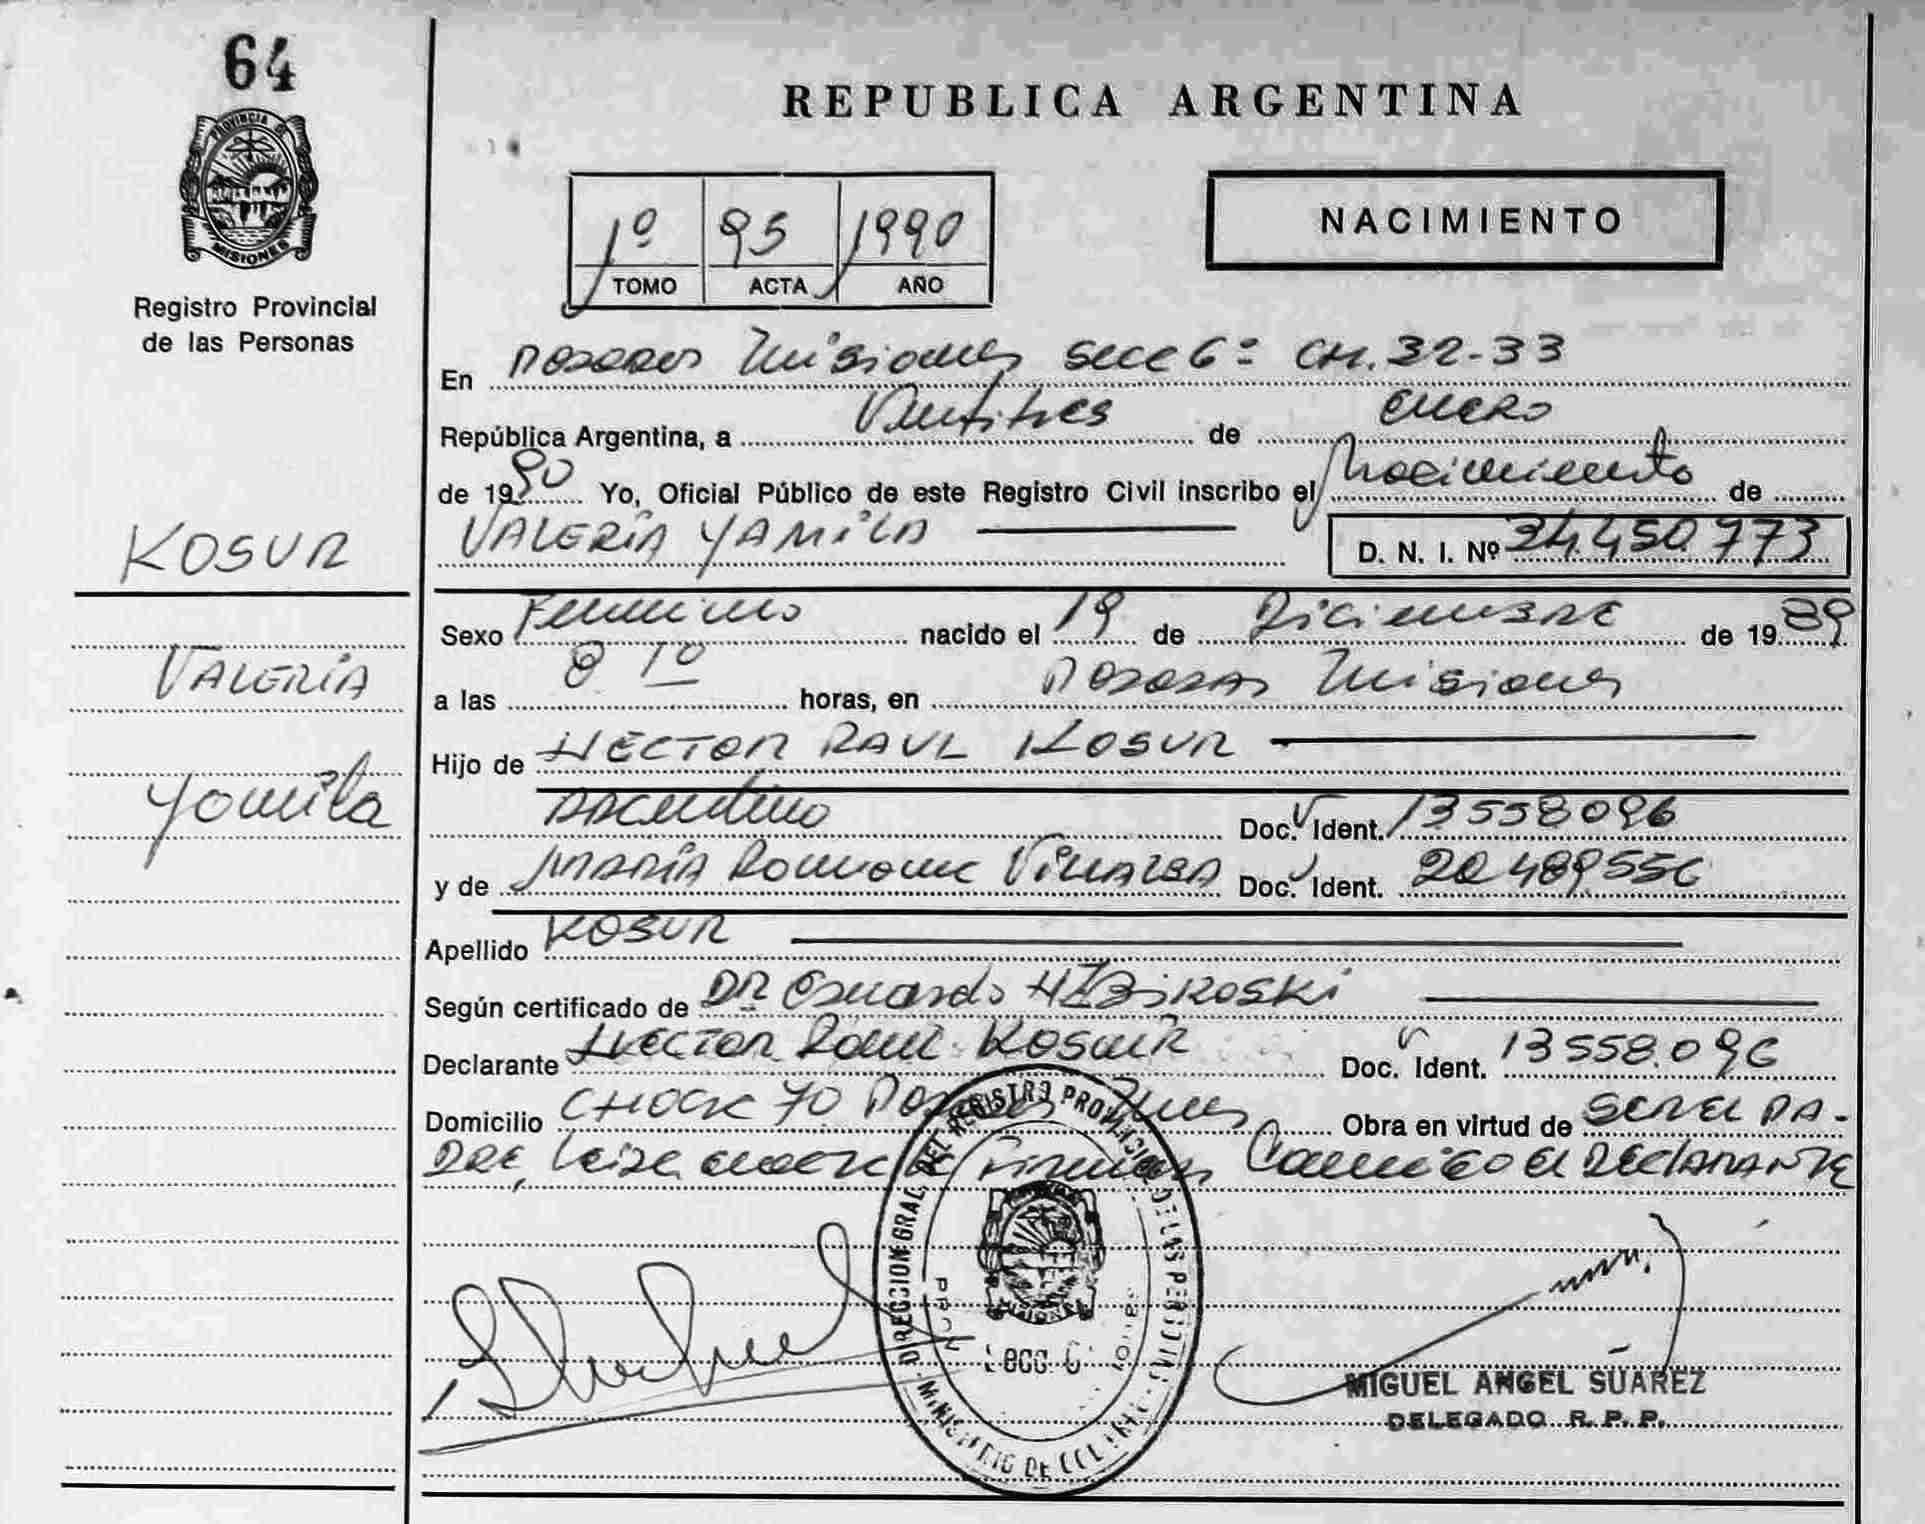 64
PROVINCIA DE
MISIONES
Registro Provincial
de las Personas
KOSUR
VALERIA
Yamila
REPUBLICA ARGENTINA
1º 95 1990
TOMO ACTA AÑO
NACIMIENTO
En Posadas Misiones Secc 6º CH. 32-33
República Argentina, a Veintitres de enero
de 1990 Yo, Oficial Público de este Registro Civil inscribo el Nacimiento de
VALERIA YAMILA D. N. I. Nº 34.450.773
Sexo Femenino nacido el 19 de Diciembre de 1989
a las 8 10 horas, en Posadas Misiones
Hijo de HECTOR RAUL KOSUR
Argentino Doc. Ident. 13558096
y de MARIA Romona VILLALBA Doc. Ident. 20.489556
Apellido KOSUR
Según certificado de DR Eduardo
Declarante HECTOR Raul KOSUR Doc. Ident. 13558.096
Domicilio CHACR 70 Posadas Obra en virtud de SER EL PA-
DRE, Leida el Firman Conmigo el DECLARANTE
DIRECCION GRAL. DEL REGISTRO PROVINCIAL DE LAS PERSONAS
MINISTERIO DE
MISIONES
MIGUEL ANGEL SUAREZ
DELEGADO R. P. P.